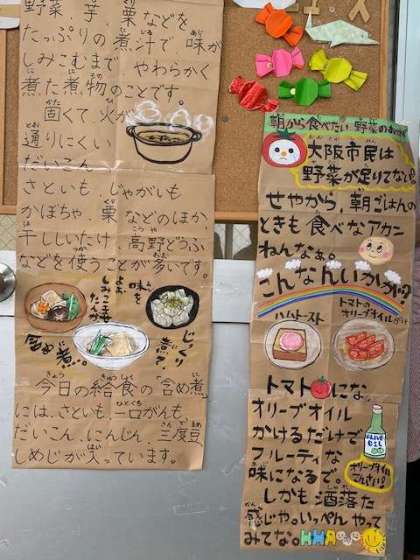 野菜、芋、栗などを
たっぷりの煮汁で味が
しみこむまで、やわらかく
煮た煮物のことです。
固くて火が
通りにくい
だいこん、
さといも、じゃがいも
かぼちゃ、栗などのほか、
干ししいたけ、高野どうふ
などを使うことが多いです。
味を
よぉ
しみこませ
たったか
含め煮♪
じっくり
煮て?
今日の給食の「含め煮」
には、さといも、一口がんも、
だいこん、にんじん、三度豆、
しめじが入っています。
朝から食べたい野菜のおかず
大阪市民は
野菜が足りてないな
せやから、朝ごはんの
ときも食べなアカン
ねんなぁ。
こんなんいかが?
ハムトースト
トマトの
オリーブオイルがけ
トマトにな、
オリーブオイル
かけるだけで
フルーティな
味になるで。
OLIVE
OIL
しかも洒落た
感じやっ。いっぺんやって
みてな。